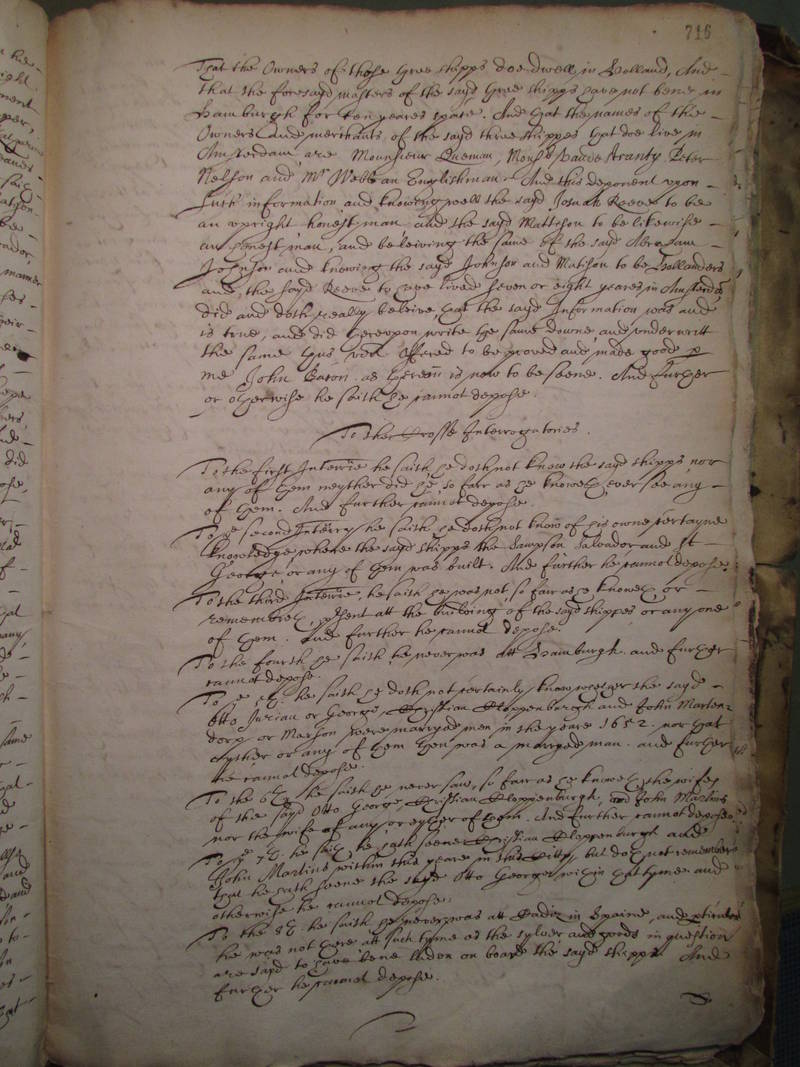 716
That the Owners of those three shipps doe dwell in Holland, And
that the foresayd masters of the sayd three shipps have not bene in
Hamburgh for ten yeares space. And that the names of the
Owners and merchants of the sayd three shippes that doe live in
Amsterdam are Mounsieur Queman, Peter
Nelson and Mr Webb an Englishman. And this deponent upon
such information and knowing well the sayd Josuah Reeve to be
an upright honest man, and the sayd Mattison to be likewise
an honest man, and beleiving the same of the sayd Abraham
Johnson and knowing the sayd Johnson and Matison to be Hollanders
and the sayd Reeve to have lived seven or eight yeares in Amsterdam
did and doth really beleive that the sayd Information was and
is true, and did thereupon write the same downe, and underwritt
the same thus vizt Offered to be proved and made good p
me John Bacon. as therein is now to be seene. And further
or otherwise he saith he cannot depose.
To the Crosse Interrogatories.
To the first Interrie he saith he doth not know the sayd shipps nor
any of them neyther did he so far as he knoweth ever see any
of them. And further cannot depose.
To ye second Interry he saith he doth not know of his owne certayne
knowledge where the sayd shipps the Sampson Salvador and St
George or any of them was built. And further he cannot depose.
To the third Interrie. he saith he was not, so far as he knoweth or
remembreth, present att the building of the sayd shippes or any one
of them. And further he cannot depose.
To the fourth he saith he never was att Hamburgh. and further
cannot depose.
To ye 5th. he saith he doth not certainly know whether the sayd
Otto Jurian or George, Christian Cloppenburgh and John Marten
dorp or Marson were marryed men in the yeare 1652. nor that
eyther or any of them then was a marryed man. and further
he cannot depose.
To the 6th he saith he never saw, so far as he knoweth the wifes
of the sayd Otto George, Christian Cloppenburgh, and John Martins
nor the wife of any or eyther of them. And further cannot depose.
To ye 7th. he saith he hath seene Christian Cloppenburgh and
John Martins within this yeare in this Citty, but doth not remember
that he hath seene the sayd Otto George within that tyme and
otherwise he cannot depose.
To the 8th he saith he never was att Cadiz in Spaine, and pticularly
he was not there att such tyme as the sylver and goods in question
are sayd to have bene laden on board the sayd shipps. And
further he cannot depose.